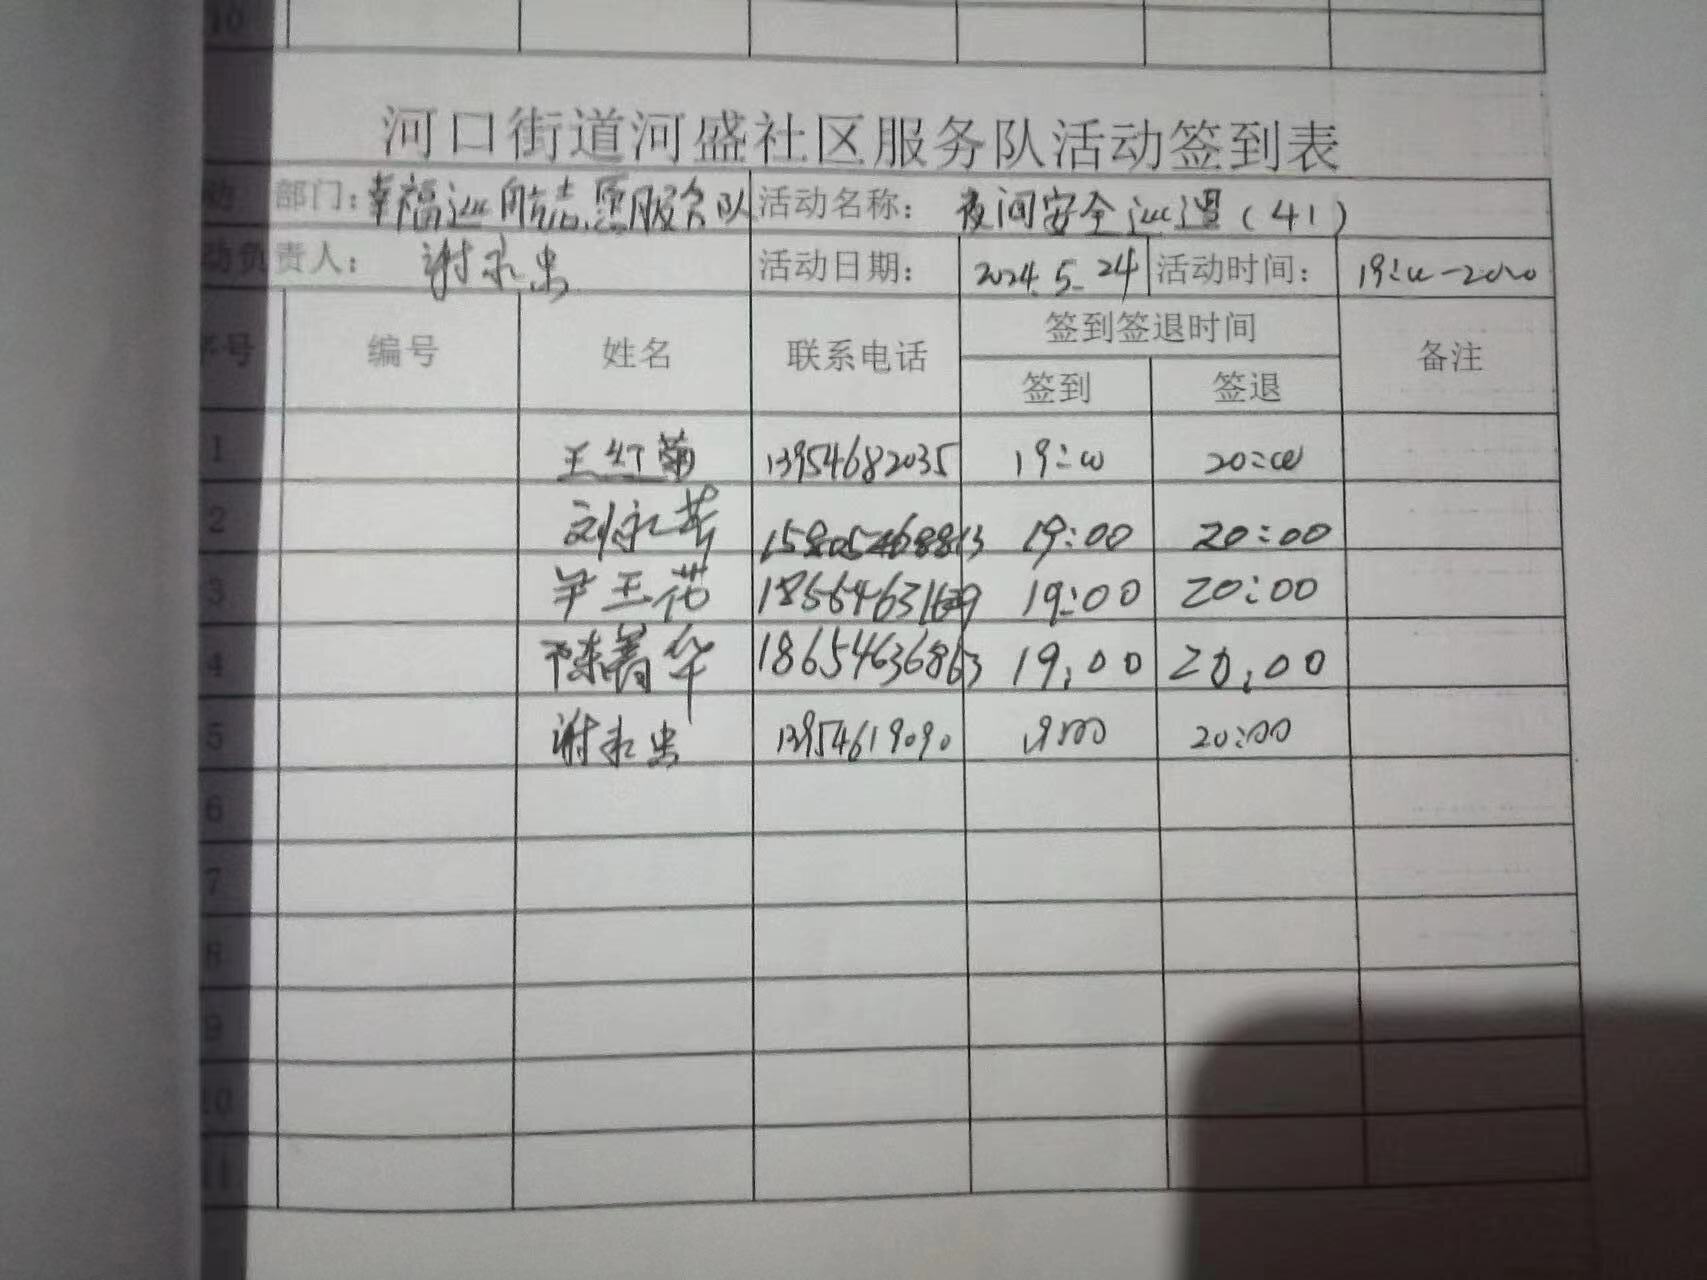 10
河口街道河盛社区服务队活动签到表
动 部门: 幸福巡航志愿服务队 活动名称: 夜间安全巡逻(41)
动负责人: 谢永忠 活动日期: 2024.5.24 活动时间: 19:00-20:00
序号 编号 姓名 联系电话 签到签退时间 备注
签到 签退
1 王红菊 13954682035 19:00 20:00
2 15805468813 19:00 20:00
3 19:00 20:00
4 陈菁华 18654636863 19:00 20:00
5 谢永忠 13954619090 19:00 20:00
6
7
8
9
10
11